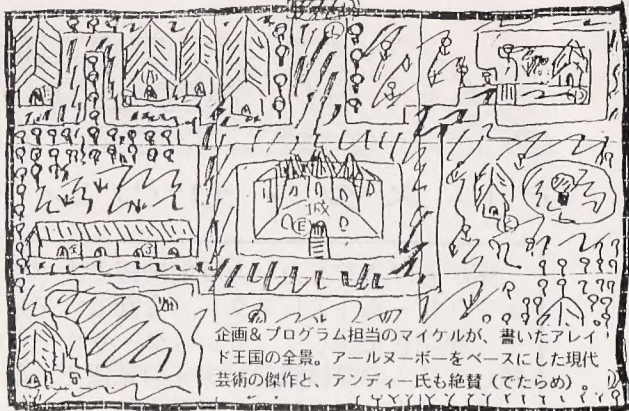 城
E
池
企画&プログラム担当のマイケルが、書いたアレイ
ド王国の全景。アールヌーボーをベースにした現代
芸術の傑作と、アンディー氏も絶賛（でたらめ）。